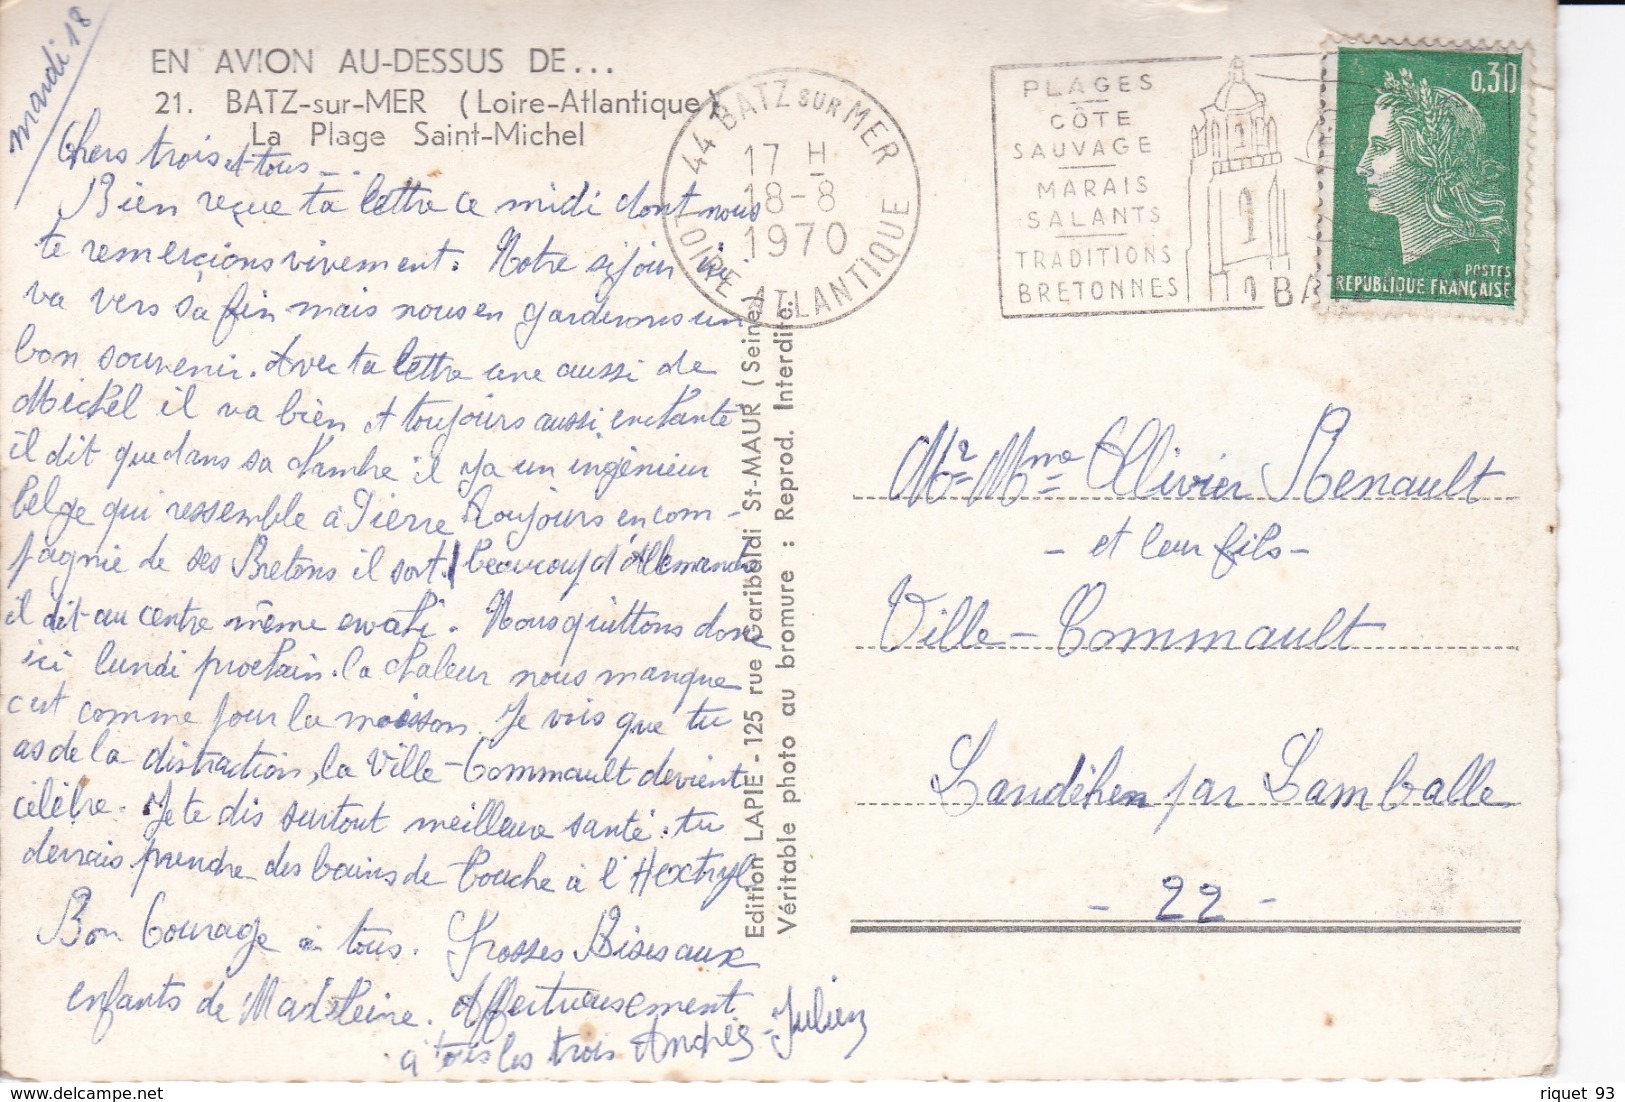 mardi 18
EN AVION AU-DESSUS DE...
21. BATZ-sur-MER (Loire-Atlantique)
La Plage Saint-Michel
Chers trois et tous...
Bien reçue ta lettre ce midi dont nous
te remercions vivement. Notre séjour ici
va vers sa fin mais nous en garderons un
bon souvenir. Avec ta lettre une aussi de
Michel il va bien et toujours aussi enchanté
il dit que dans sa chambre il y a un ingénieur
belge qui ressemble à Pierre Toujours en com-
pagnie de ses Bretons il sort beaucoup d'Allemands
il dit au centre même
Nous quittons donc
ici lundi prochain. la chaleur nous manque
c'est comme pour la moisson. Je vois que tu
as de la distraction, la Ville-Commault devient
célèbre. Je te dis surtout meilleure santé. tu
devrais prendre des bains de bouche à l'Hextryl
Bon Courage à tous. Grosses Bises aux
enfants de Madeleine. Affectueusement
à tous les trois Andrée Julien
44 BATZ SUR MER
17 H
18-8
1970
LOIRE ATLANTIQUE
PLAGES
CÔTE
SAUVAGE
MARAIS
SALANTS
TRADITIONS
BRETONNES
BATZ
0,30
POSTES
REPUBLIQUE FRANÇAISE
Edition LAPIE - 125 rue Garibaldi St-MAUR (Seine)
Véritable photo au bromure : Reprod. Interdite.
Mr Mme Ollivier Renault
- et leur fils -
Ville-Commault
Landéhen par Lamballe
- 22 -
https://www.delcampe.net
riquet 93